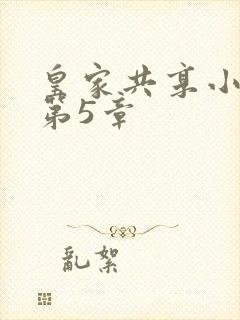 皇家共享小
第5章
乱絮